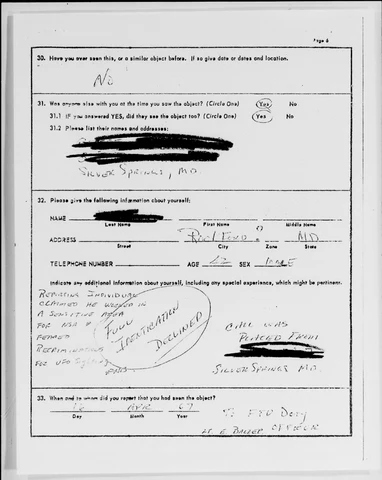 Page 6
30. Have you ever seen this, or a similar object before. If so give date or dates and location.
NO
31. Was anyone else with you at the time you saw the object? (Circle One) Yes No
31.1 IF you answered YES, did they see the object too? (Circle One) Yes No
31.2 Please list their names and addresses:
SILVER SPRINGS, MD.
32. Please give the following information about yourself:
NAME
Last Name First Name Middle Name
ADDRESS MD
Street City Zone State
TELEPHONE NUMBER AGE SEX MALE
Indicate any additional information about yourself, including any special experience, which might be pertinent.
REPORTING INDIVIDUAL
CLAIMED HE WORKED IN
A SENSITIVE AREA
FOR NSA &
FEARED
RECRIMINATION
FOR UFO
FULL
IDENTIFICATION
DECLINED
CALL WAS
PLACED FROM
SILVER SPRINGS MD.
33. When and to whom did you report that you had seen the object?
APR 67 TO FTD DUTY
Day Month Year
LT E OFFICER